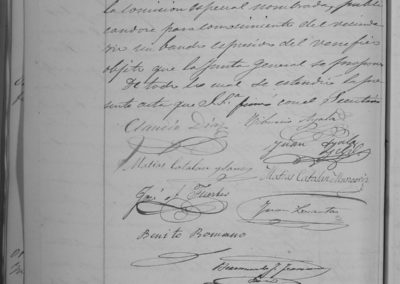 la comision especial nombrada, publi
candose para conocimiento del vecinda
rio un bando espresivo del venefico
objeto que la Junta General se propone
De todo lo cual se estendio la pre
sente acta que S.Sª. firmó con el Secretario
Claudio Diaz Tiburcio Ayala
Juan Ayala
Matias Catalan y Lanas Matias Catalan
Fuertes
Juan
Benito Romano